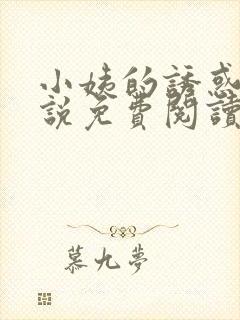 小姨的誘惑
說免費閱讀
慕九夢